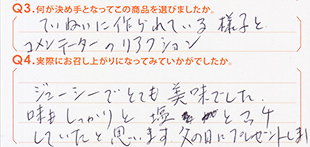 Q3.何が決め手となってこの商品を選びましたか。
ていねいに作られている様子と
コメンテーターのリアクション
Q4.実際にお召し上がりになってみていかがでしたか。
ジューシーでとても美味でした。
味もしっかりと塩
していたと思います 父の日にプレゼントしま